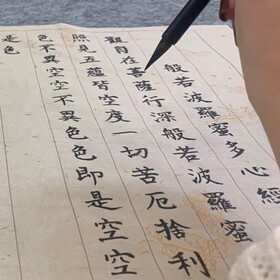 般若波羅蜜多心經
觀自在菩薩行深般若波羅蜜
照見五蘊皆空度一切苦厄捨利
色不異空空不異色色即是空空
是色